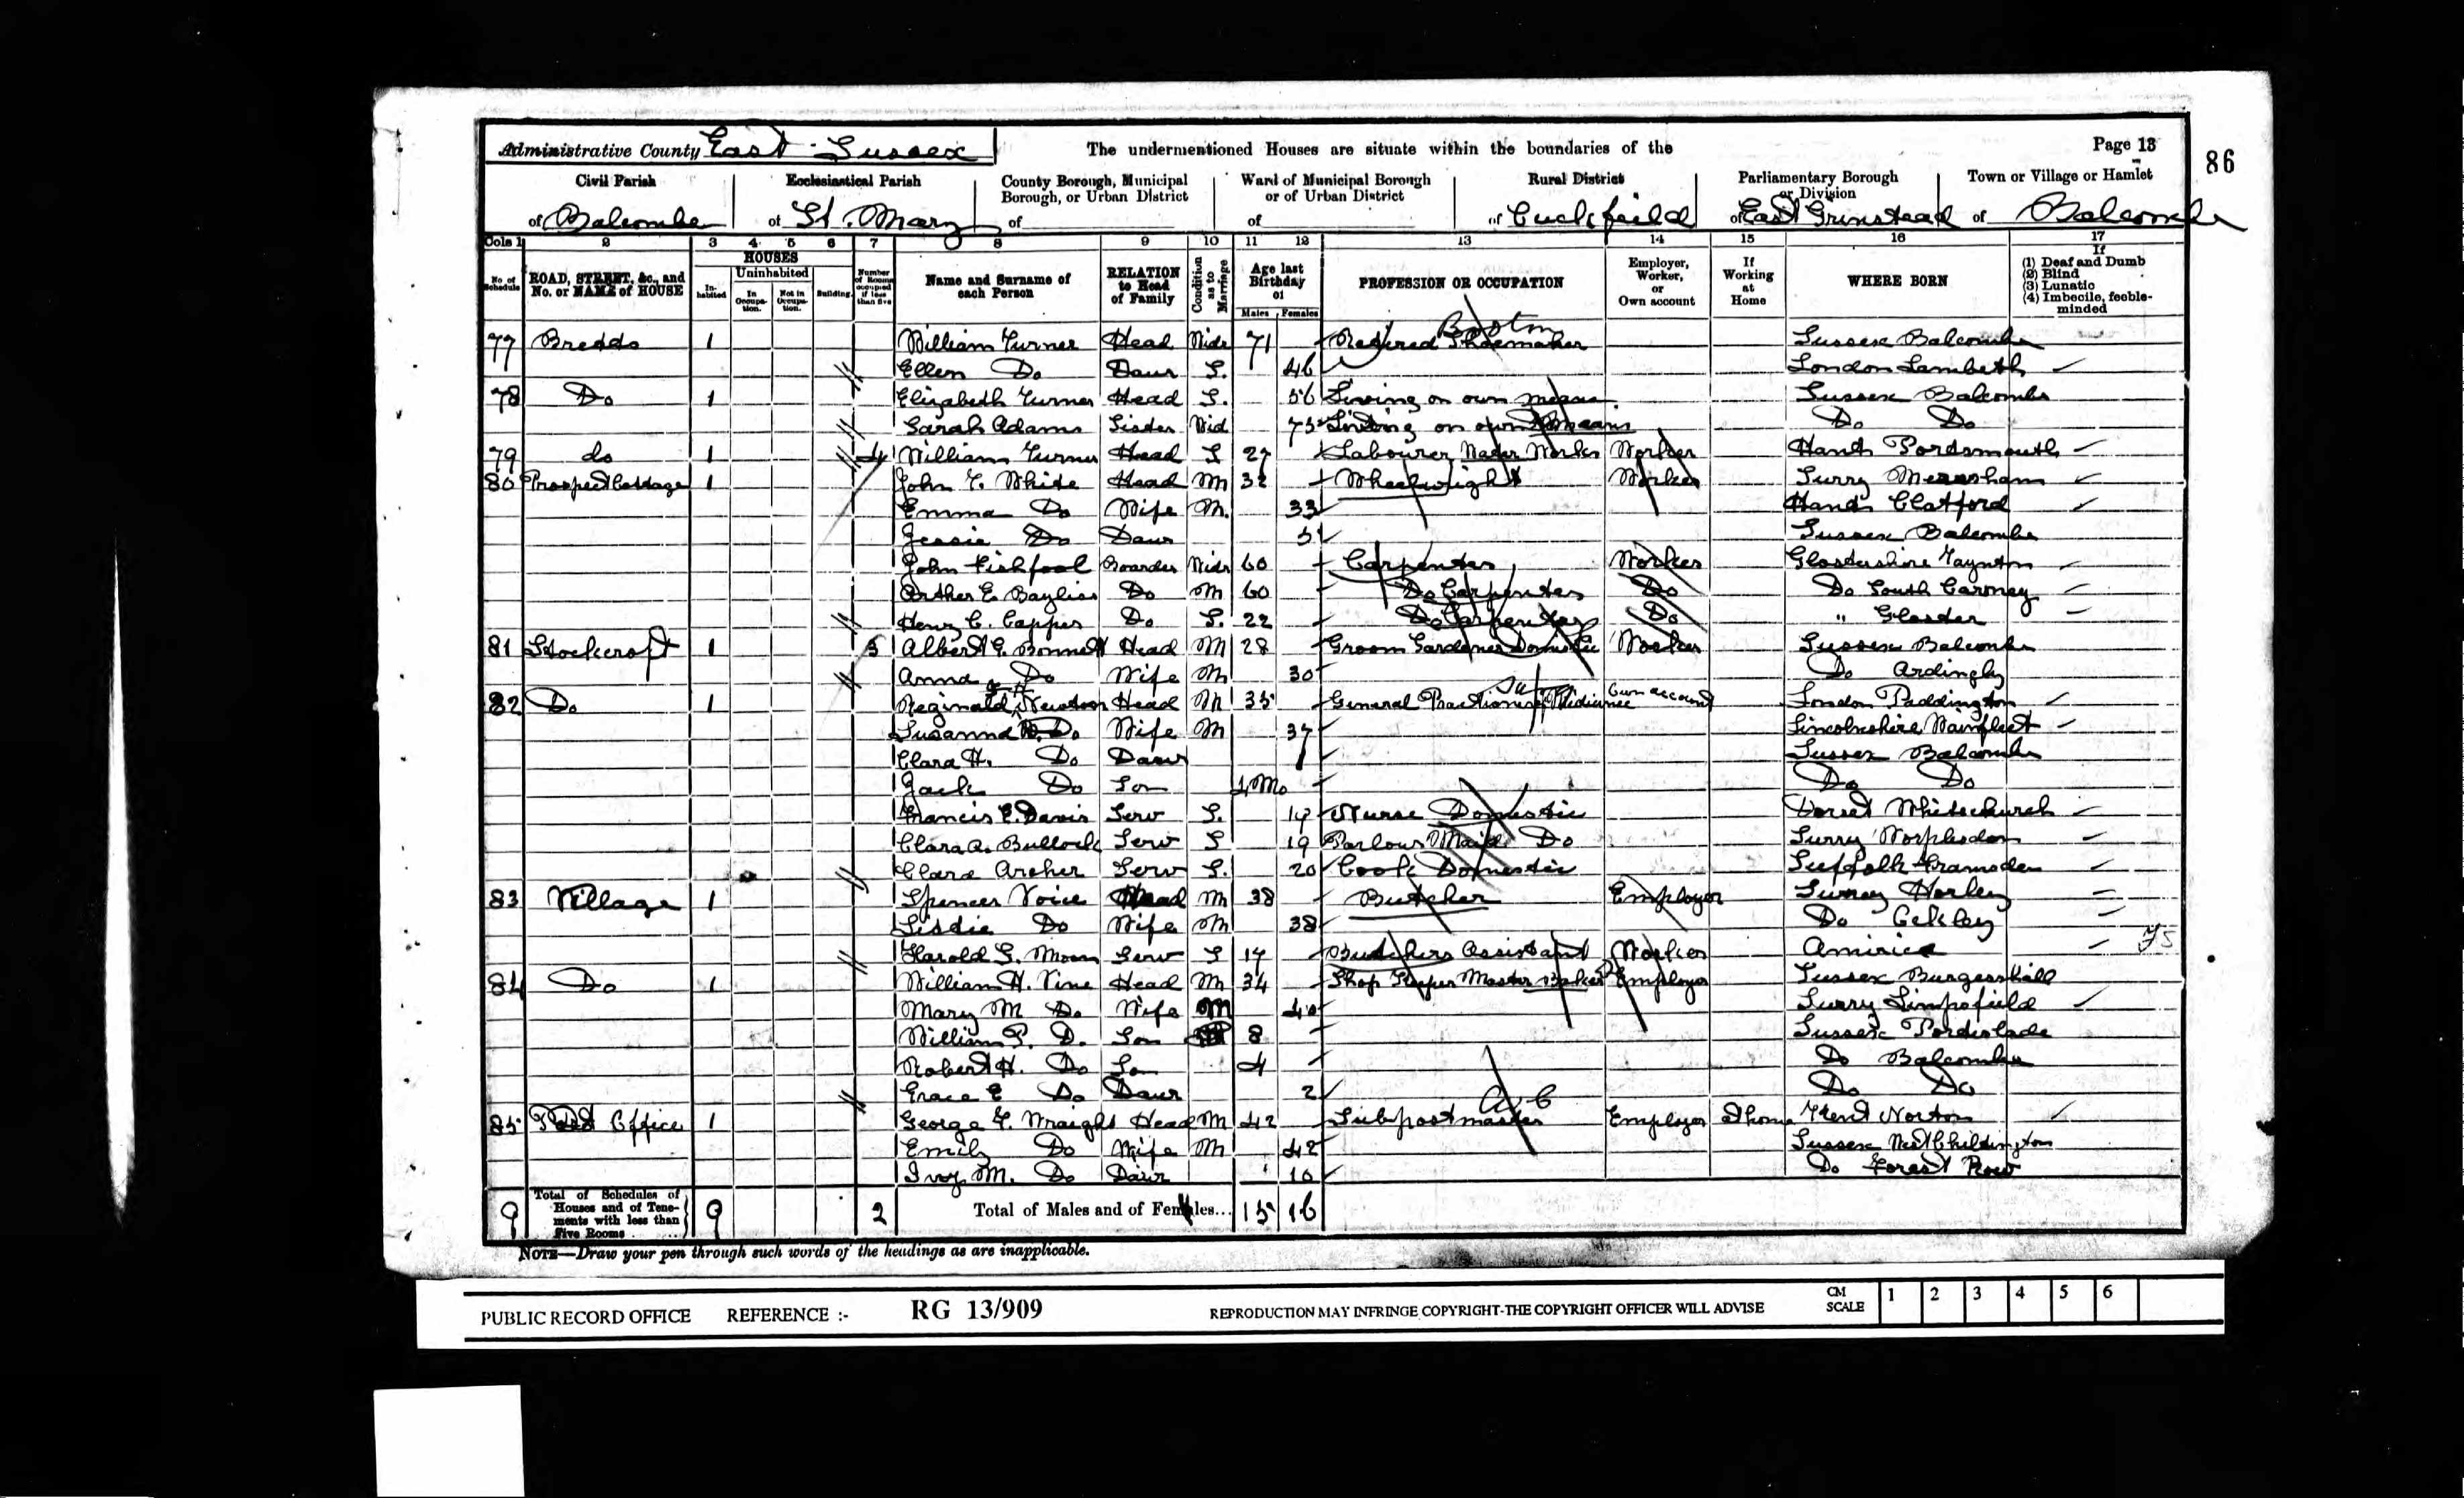 Administrative County East Sussex
The undermentioned Houses are situate within the boundaries of the
Page 13
86
Civil Parish of Balcombe
Ecclesiastical Parish of St. Mary
County Borough, Municipal Borough, or Urban District of
Ward of Municipal Borough or of Urban District of
Rural District of Cuckfeild
Parliamentary Borough or Division of East Grinstead
Town or Village or Hamlet of Balcombe
Cols 1 2 3 4 5 6 7 8 9 10 11 12 13 14 15 16 17
No. of Schedule
ROAD, STREET, &c., and No. or NAME of HOUSE
HOUSES
Inhabited
Uninhabited
In Occupation.
Not in Occupation.
Building.
Number of Rooms occupied if less than five
Name and Surname of each Person
RELATION to Head of Family
Condition as to Marriage
Age last Birthday of
Males Females
PROFESSION OR OCCUPATION
Employer, Worker, or Own account
If Working at Home
WHERE BORN
If
(1) Deaf and Dumb
(2) Blind
(3) Lunatic
(4) Imbecile, feeble-minded
77 Bredds 1 William Turner Head Widr 71 Retired Shoemaker Sussex Balcombe
Ellen Do Daur S. 46 London Lambeth
78 Do 1 Elizabeth Turner Head S. 56 Living on own means Sussex Balcombe
Sarah Adams Sister Wid 75 Living on own Means Do Do
79 do 1 4 William Turner Head S 27 Labourer Water Works Worker Hants Portsmouth
80 Prospect Cottage 1 John T. White Head M 32 Wheelwright Worker Surry Mersham
Emma Do Wife M. 33 Hants Clatford
Jessie Do Daur 5 Sussex Balcombe
John Fishpool Boarder Widr 60 Carpenter Worker Glostershire Taynton
Arther E. Bayliss Do M 60 Do Carpenter Do Do South Carney
Henry C. Capper Do S. 22 Do Carpenter Do " Gloster
81 Stockcroft 1 3 Albert G. Bonnett Head M 28 Groom Gardener Domestic Worker Sussex Balcombe
Anna Do Wife M 30 Do Ardingly
82 Do 1 Reginald Newton Head M 35 General Practioner Midicine Own account London Paddington
Susanna Do Wife M 37 Lincolnshire Wainfleet
Clara H. Do Daur 1 Sussex Balcombe
Jack Do Son 1 Mo Do Do
Francis E. Davis Serv S. 17 Nurse Domestic Dorset Whitechurch
Clara A. Bullock Serv S 19 Parlour Maid Do Surry Worplesdon
Clara Archer Serv S. 20 Cook Domestic Suffolk Framsden
83 Village 1 Spencer Voice Head M 38 Butcher Employer Surrey Horley
Liddie Do Wife M 38 Do Ockley
Harold G. Moon Serv S 17 Butchers Assistant Worker Amirica
84 Do 1 William H. Vine Head M 34 Shop Keeper Master Baker Employer Sussex Burgess Hill
Mary M Do Wife M 40 Surry Limpsfield
William P. D. Son 8 Sussex Portslade
Robert H. Do Son 4 Do Balcombe
Grace E Do Daur 2 Do Do
85 Post Office 1 George F. Wraight Head M 42 Subpostmaster Employer At home Kent Norton
Emily Do Wife M 42 Sussex West Chiltington
Ivy M. Do Daur 10 Do Forest Row
9 Total of Schedules of Houses and of Tenements with less than Five Rooms 9 2 Total of Males and of Females... 15 16
NOTE—Draw your pen through such words of the headings as are inapplicable.
PUBLIC RECORD OFFICE REFERENCE :- RG 13/909 REPRODUCTION MAY INFRINGE COPYRIGHT-THE COPYRIGHT OFFICER WILL ADVISE CM SCALE 1 2 3 4 5 6